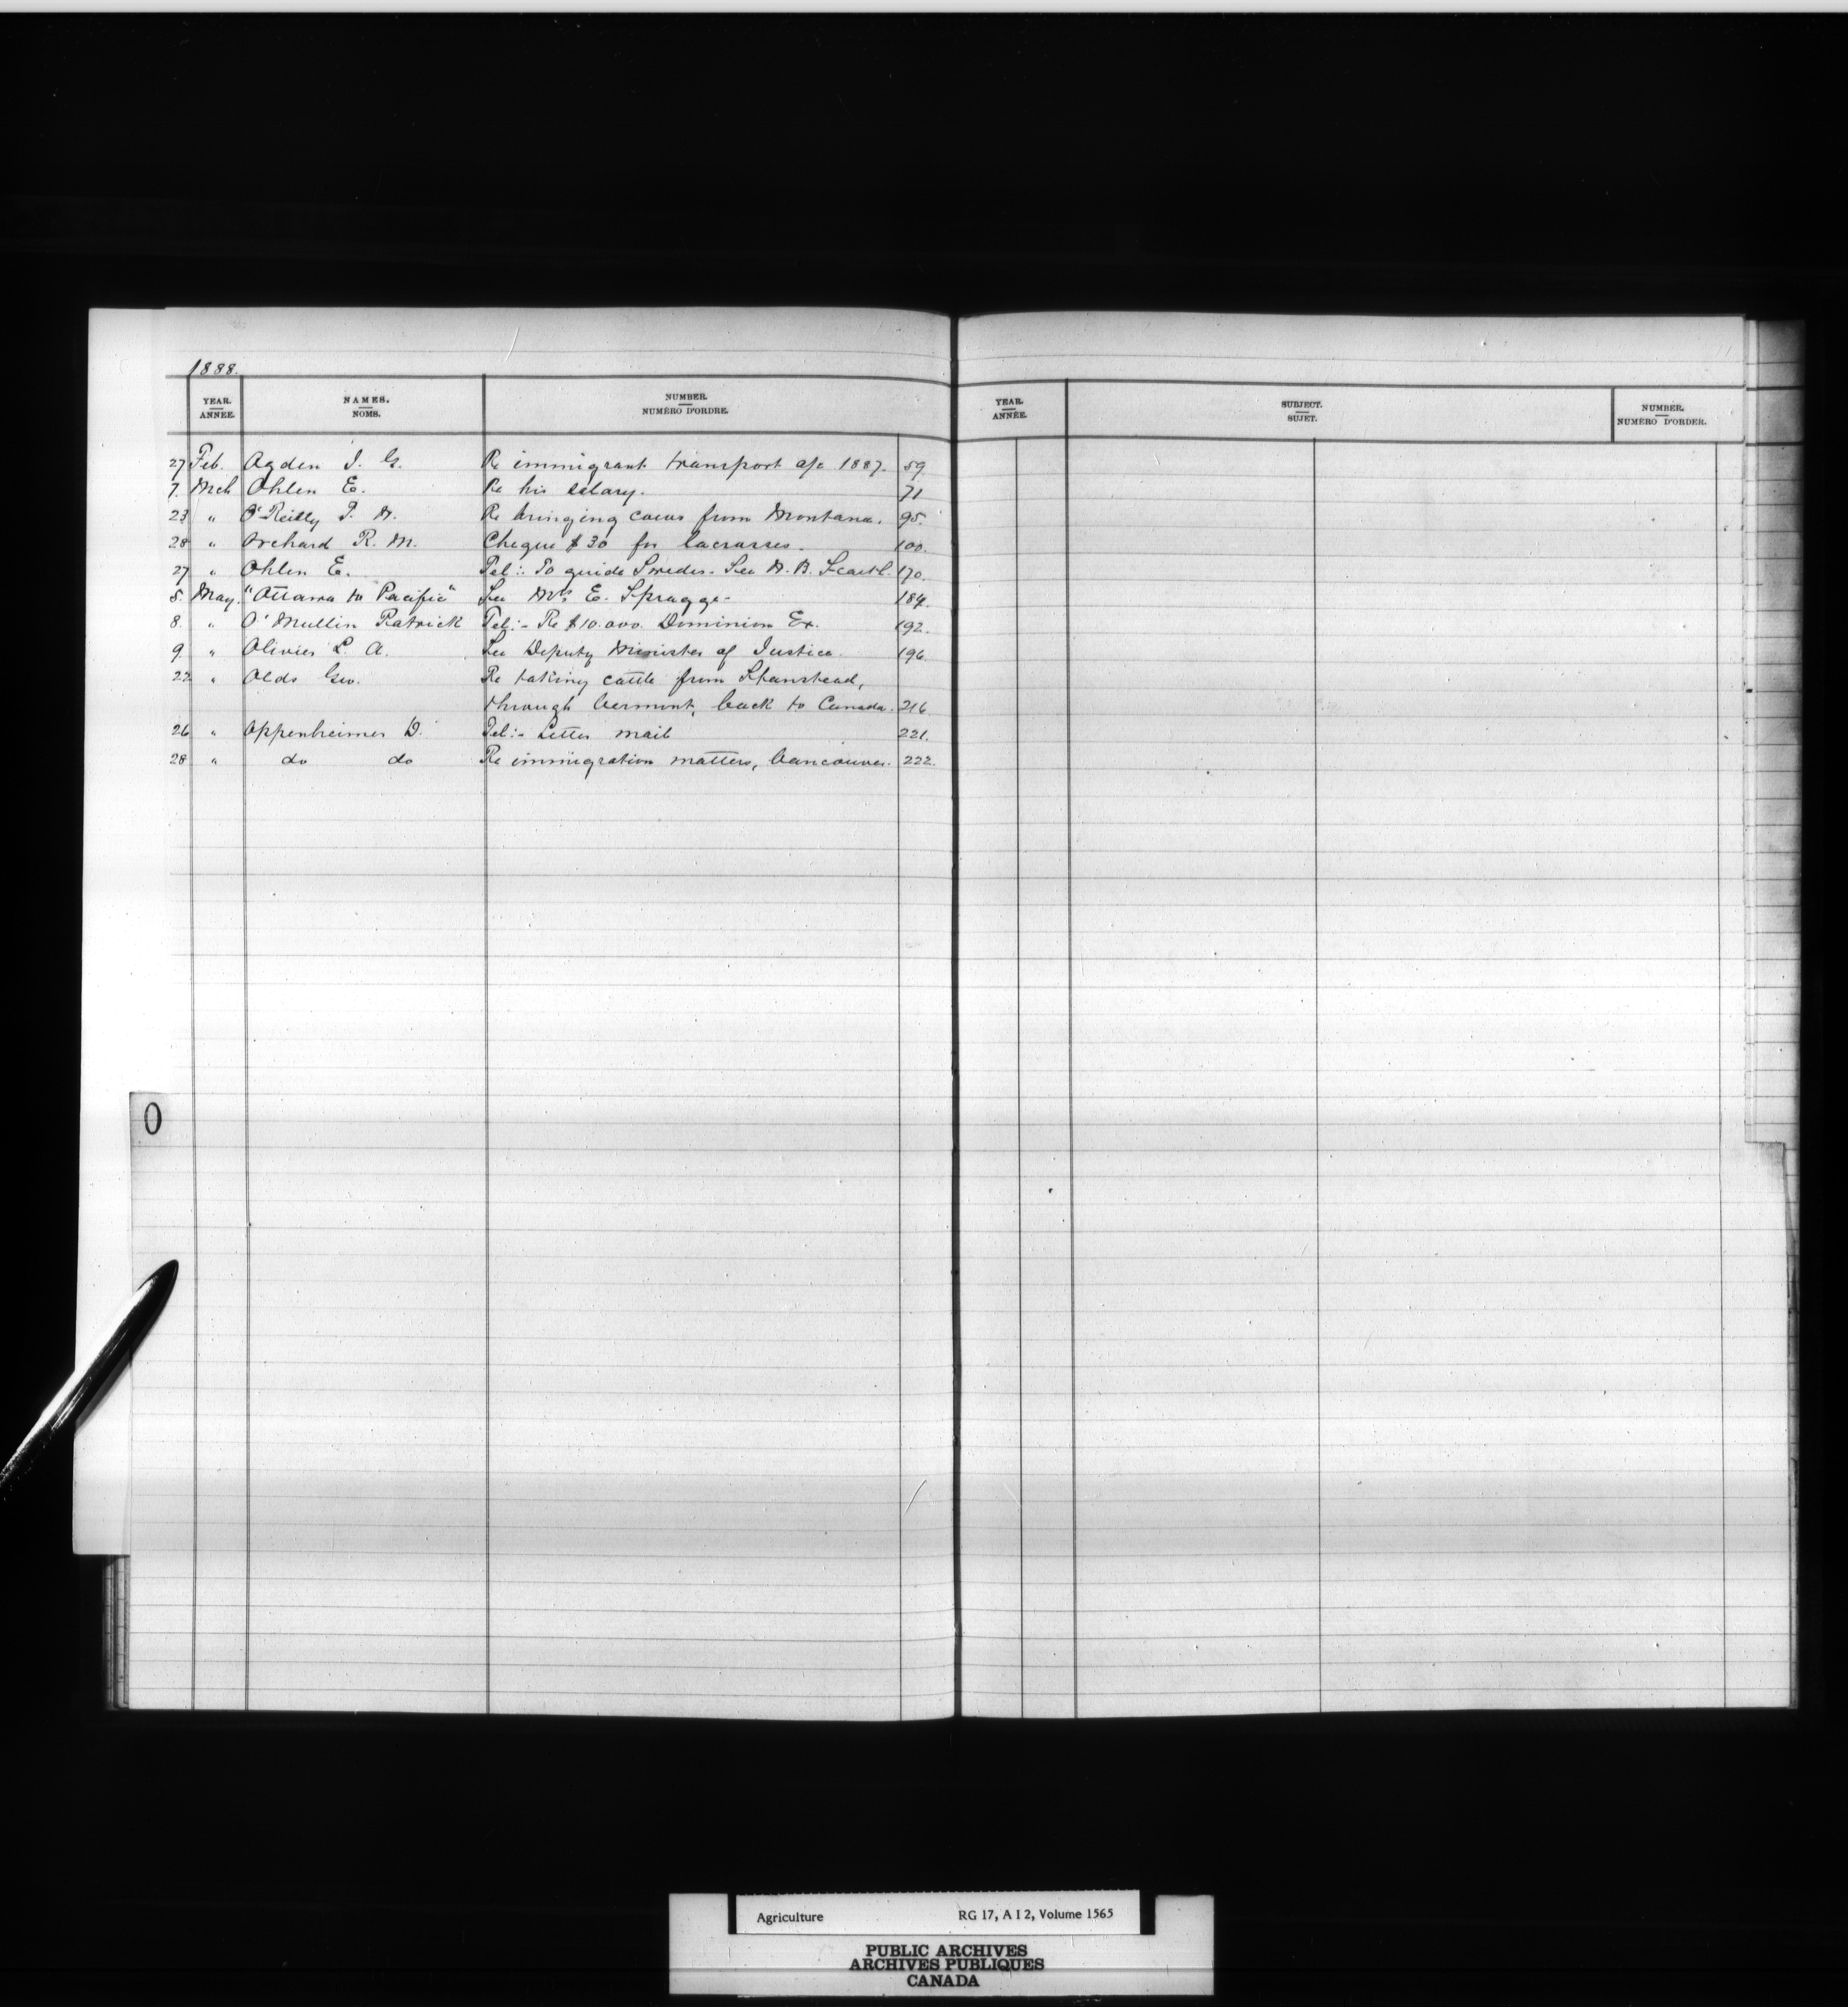 1888.
YEAR. NAMES. NUMBER.
ANNÉE. NOMS. NUMÉRO D'ORDRE.
27 Feb. Ogden I. G. Re immigrant transport a/c 1887. 59
7. Mch Ohlen E. Re his salary. 71
23 " O'Reilly P. Re bringing cows from Montana. 95.
28 " Orchard R. M. Cheque $30 for lacrosses. 100.
27 " Ohlen E. Tel:- To guide Swedes. See 170.
May. "Ottawa to Pacific" See Mrs E. Spragge- 184.
8. " O'Mullin Patrick Tel:- Re $10.000. Dominion Ex. 192.
9 " Olivier L. A. See Deputy Minister of Justice. 196.
22 " Olds Geo. Re taking cattle from Stanstead,
through Vermont, back to Canada. 216.
26 " Oppenheimer D. Tel:- Letter mail 221.
28 " do do Re immigration matters, Vancouver. 222.
O
YEAR. SUBJECT. NUMBER.
ANNÉE. SUJET. NUMÉRO D'ORDER.
Agriculture RG 17, A I 2, Volume 1565
PUBLIC ARCHIVES
ARCHIVES PUBLIQUES
CANADA